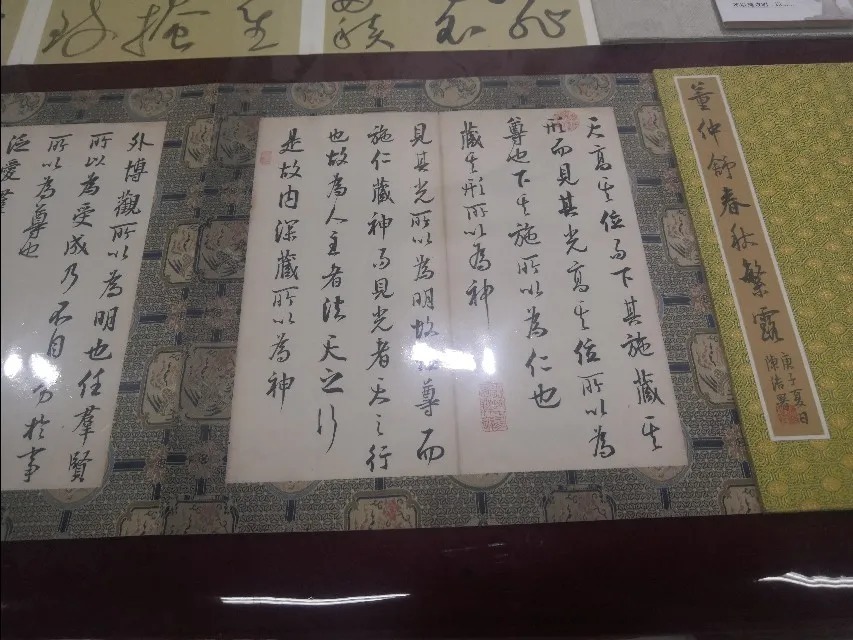 董仲舒春秋繁露
庚子夏日
天高其位而下其施藏其
形而見其光高其位所以為
尊也下其施所以為仁也
藏其形所以為神
見其光所以為明故尊而
施仁藏神而見光者天之行
也故為人主者法天之行
是故内深藏所以為神
外博觀所以為明也任羣賢
所以為受成乃不自於事
所以為尊也
泛愛羣